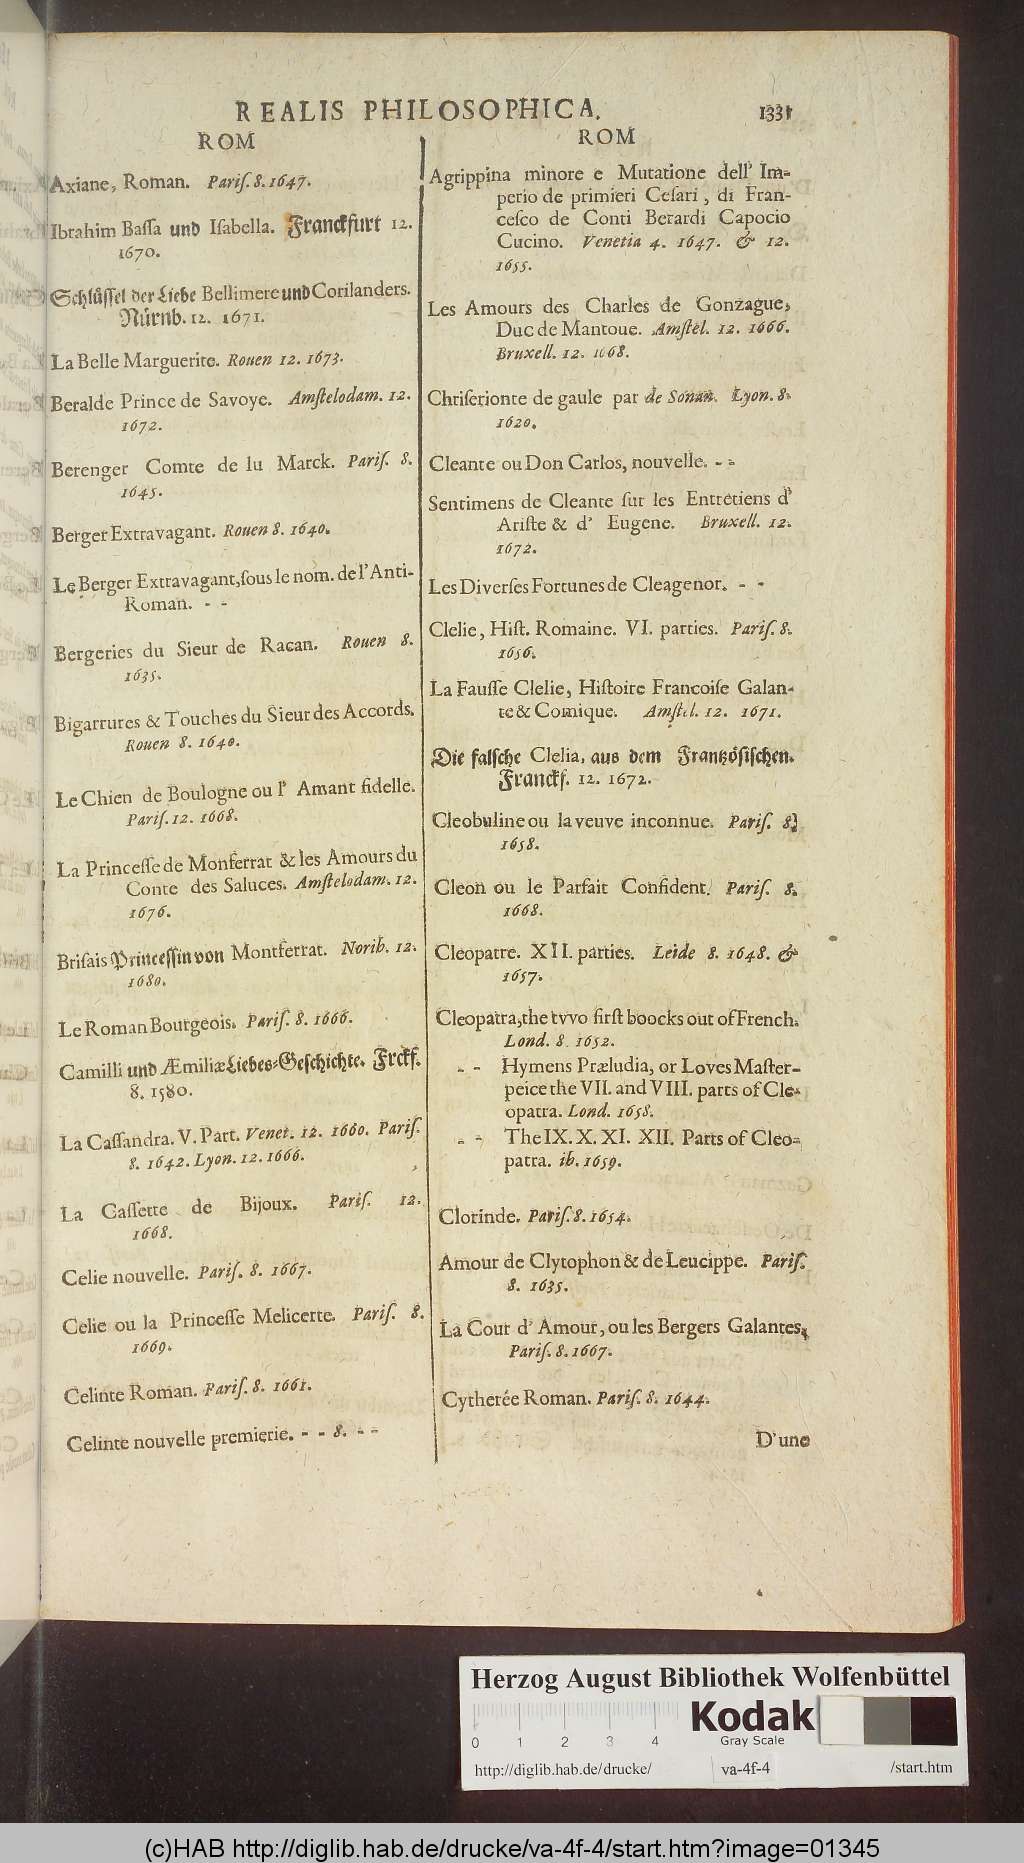 REALIS PHILOSOPHICA. 1331
ROM
Axiane, Roman. Pariſ. 8. 1647.
Ibrahim Baſſa und Iſabella. Franckfurt 12.
1670.
Schlüſſel der Liebe Bellimere und Corilanders.
Nürnb. 12. 1671.
La Belle Marguerite. Rouen 12. 1673.
Beralde Prince de Savoye. Amſtelodam. 12.
1672.
Berenger Comte de lu Marck. Pariſ. 8.
1645.
Berger Extravagant. Rouen 8. 1640.
Le Berger Extravagant, ſous le nom. de l'Anti-
Roman. - -
Bergeries du Sieur de Racan. Rouen 8.
1635.
Bigarrures & Touches du Sieur des Accords.
Rouen 8. 1640.
Le Chien de Boulogne ou l' Amant fidelle.
Pariſ. 12. 1668.
La Princeſſe de Monferrat & les Amours du
Conte des Saluces. Amſtelodam. 12.
1676.
Briſais Princeſſin von Montferrat. Norib. 12.
1680.
Le Roman Bourgeois. Pariſ. 8. 1666.
Camilli und Æmiliæ Liebes-Geſchichte. Frckf.
8. 1580.
La Caſſandra. V. Part. Venet. 12. 1660. Pariſ.
8. 1642. Lyon. 12. 1666.
La Caſſette de Bijoux. Pariſ. 12.
1668.
Celie nouvelle. Pariſ. 8. 1667.
Celie ou la Princeſſe Melicerte. Pariſ. 8.
1669.
Celinte Roman. Pariſ. 8. 1661.
Celinte nouvelle premierie. - - 8. - -
ROM
Agrippina minore e Mutatione dell' Im-
perio de primieri Ceſari, di Fran-
ceſco de Conti Berardi Capocio
Cucino. Venetia 4. 1647. & 12.
1655.
Les Amours des Charles de Gonzague,
Duc de Mantoue. Amſtel. 12. 1666.
Bruxell. 12. 1668.
Chriſerionte de gaule par de Sonan. Lyon. 8.
1620.
Cleante ou Don Carlos, nouvelle. - -
Sentimens de Cleante ſur les Entretiens d'
Ariſte & d' Eugene. Bruxell. 12.
1672.
Les Diverſes Fortunes de Cleagenor. - -
Clelie, Hiſt. Romaine. VI. parties. Pariſ. 8.
1656.
La Fauſſe Clelie, Hiſtoire Francoiſe Galan-
te & Comique. Amſtel. 12. 1671.
Die falſche Clelia, aus dem Frantzöſiſchen.
Franckf. 12. 1672.
Cleobuline ou la veuve inconnue. Pariſ. 8.
1658.
Cleon ou le Parfait Confident. Pariſ. 8.
1668.
Cleopatre. XII. parties. Leide 8. 1648. &
1657.
Cleopatra, the tvvo firſt boocks out of French.
Lond. 8. 1652.
- - Hymens Præludia, or Loves Maſter-
peice the VII. and VIII. parts of Cle-
opatra. Lond. 1658.
- - The IX. X. XI. XII. Parts of Cleo-
patra. ib. 1659.
Clorinde. Pariſ. 8. 1654.
Amour de Clytophon & de Leucippe. Pariſ.
8. 1635.
La Cour d' Amour, ou les Bergers Galantes,
Pariſ. 8. 1667.
Cytherée Roman. Pariſ. 8. 1644.
D'une
Herzog August Bibliothek Wolfenbüttel
0 1 2 3 4
Kodak
Gray Scale
http://diglib.hab.de/drucke/ va-4f-4 /start.htm
(c)HAB http://diglib.hab.de/drucke/va-4f-4/start.htm?image=01345